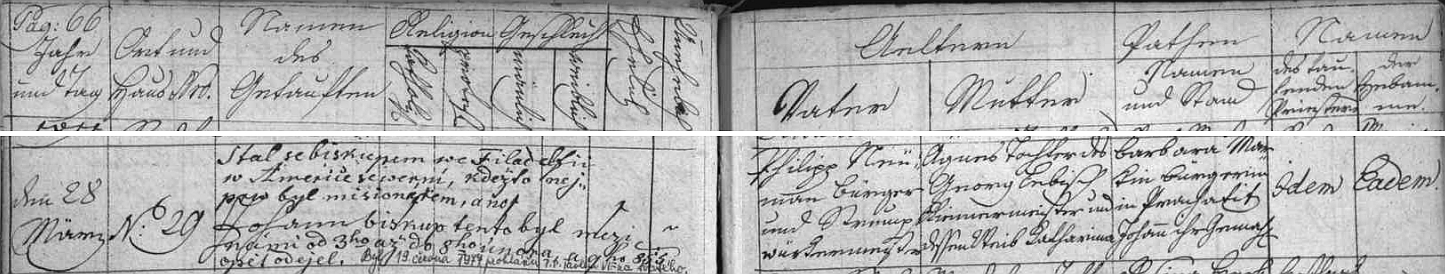 Pag: 66
Jahr
und Tag
Ort und
Haus Nro.
Namen
des
Getauften
Religion
Kathol.
Geschlecht
männl.
weiblich
Ehelich
Unehelich
Aeltern
Vater
Mutter
Pathen
Namen
und Stand
Namen
des tau-
fenden
Priesters
der
Hebam-
me.
den 28
März
No. 29
Stal se biskupem we Filadelfii
w Americe sewerní, kdežto nej-
prw byl misionářem, a nos
Johann biskup tento byl mezi
námi od 3ho až do 8ho února
opět odejel.
Byl 19. června 1977
Philipp Neu-
man Bürger
und Strumpf-
würkermeister
Agnes Tochter des
Georg Lebisch
Riemermeister und
dessen Weib Katharina
Barbara Mar-
kin Bürgerin
in Prachatitz
Johan ihr Gemahl
idem
Eadem.